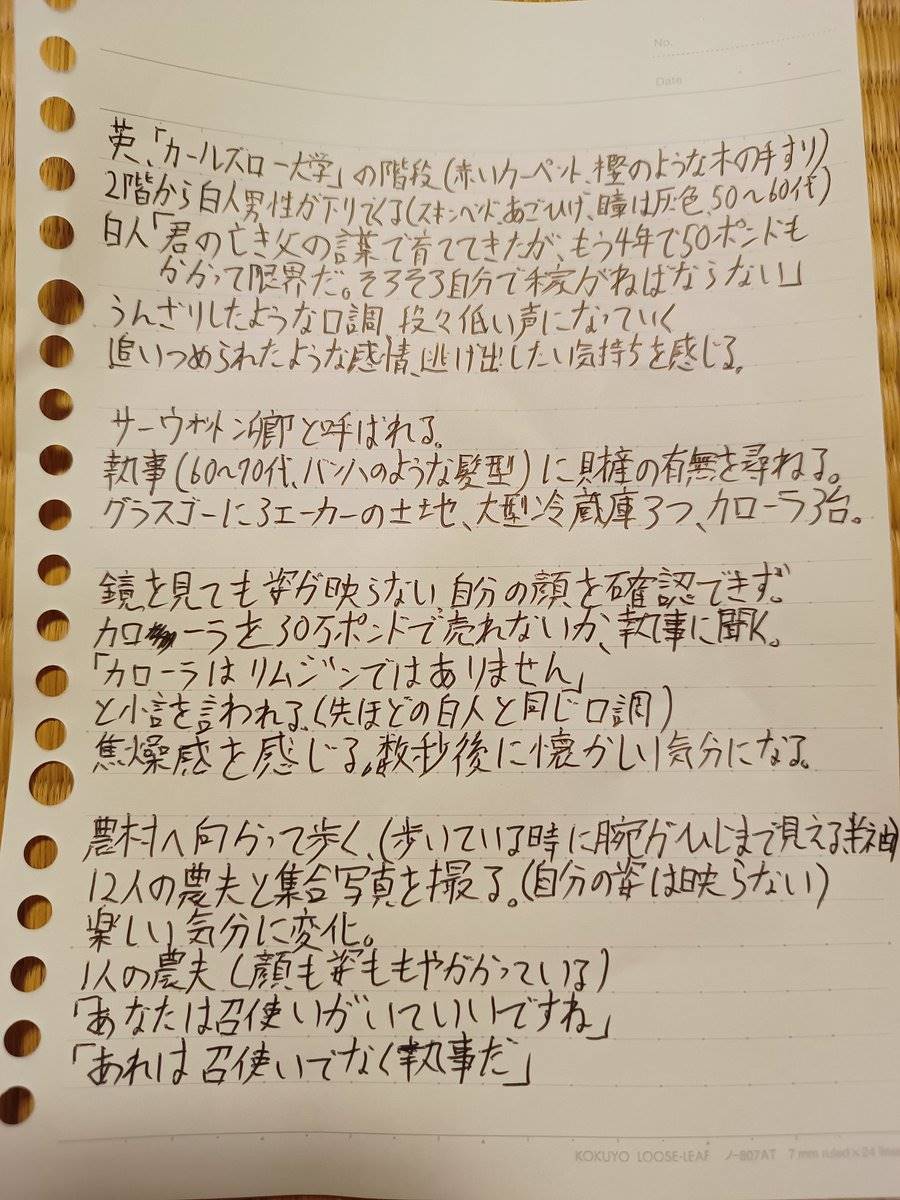 No.
Date
英、「カールズロー大学」の階段(赤いカーペット、樫のような木の手すり)
2階から白人男性が下りてくる(スキンヘッド、あごひげ、瞳は灰色、50~60代)
白人「君の亡き父の言葉で育ててきたが、もう4年で50ポンドも
かかって限界だ。そろそろ自分で稼がねばならない」
うんざりしたような口調、段々低い声になっていく
追いつめられたような感情、逃げ出したい気持ちを感じる。
サーウォットン卿と呼ばれる。
執事(60~70代、バッハのような髪型)に財産の有無を尋ねる。
グラスゴーに3エーカーの土地、大型冷蔵庫3つ、カローラ3台。
鏡を見ても姿が映らない、自分の顔を確認できず。
カローラを30万ポンドで売れないか、執事に聞く。
「カローラはリムジンではありません」
と小言を言われる、(先ほどの白人と同じ口調)
焦燥感を感じる。数秒後に懐かしい気分になる。
農村へ向かって歩く、(歩いている時に腕がひじまで見える、半袖)
12人の農夫と集合写真を撮る。(自分の姿は映らない)
楽しい気分に変化。
1人の農夫(顔も姿ももやがかっている)
「あなたは召使いがいていいですね」
「あれは召使いでなく執事だ」
KOKUYO LOOSE-LEAF ノ-807AT 7 mm ruled × 24 lines